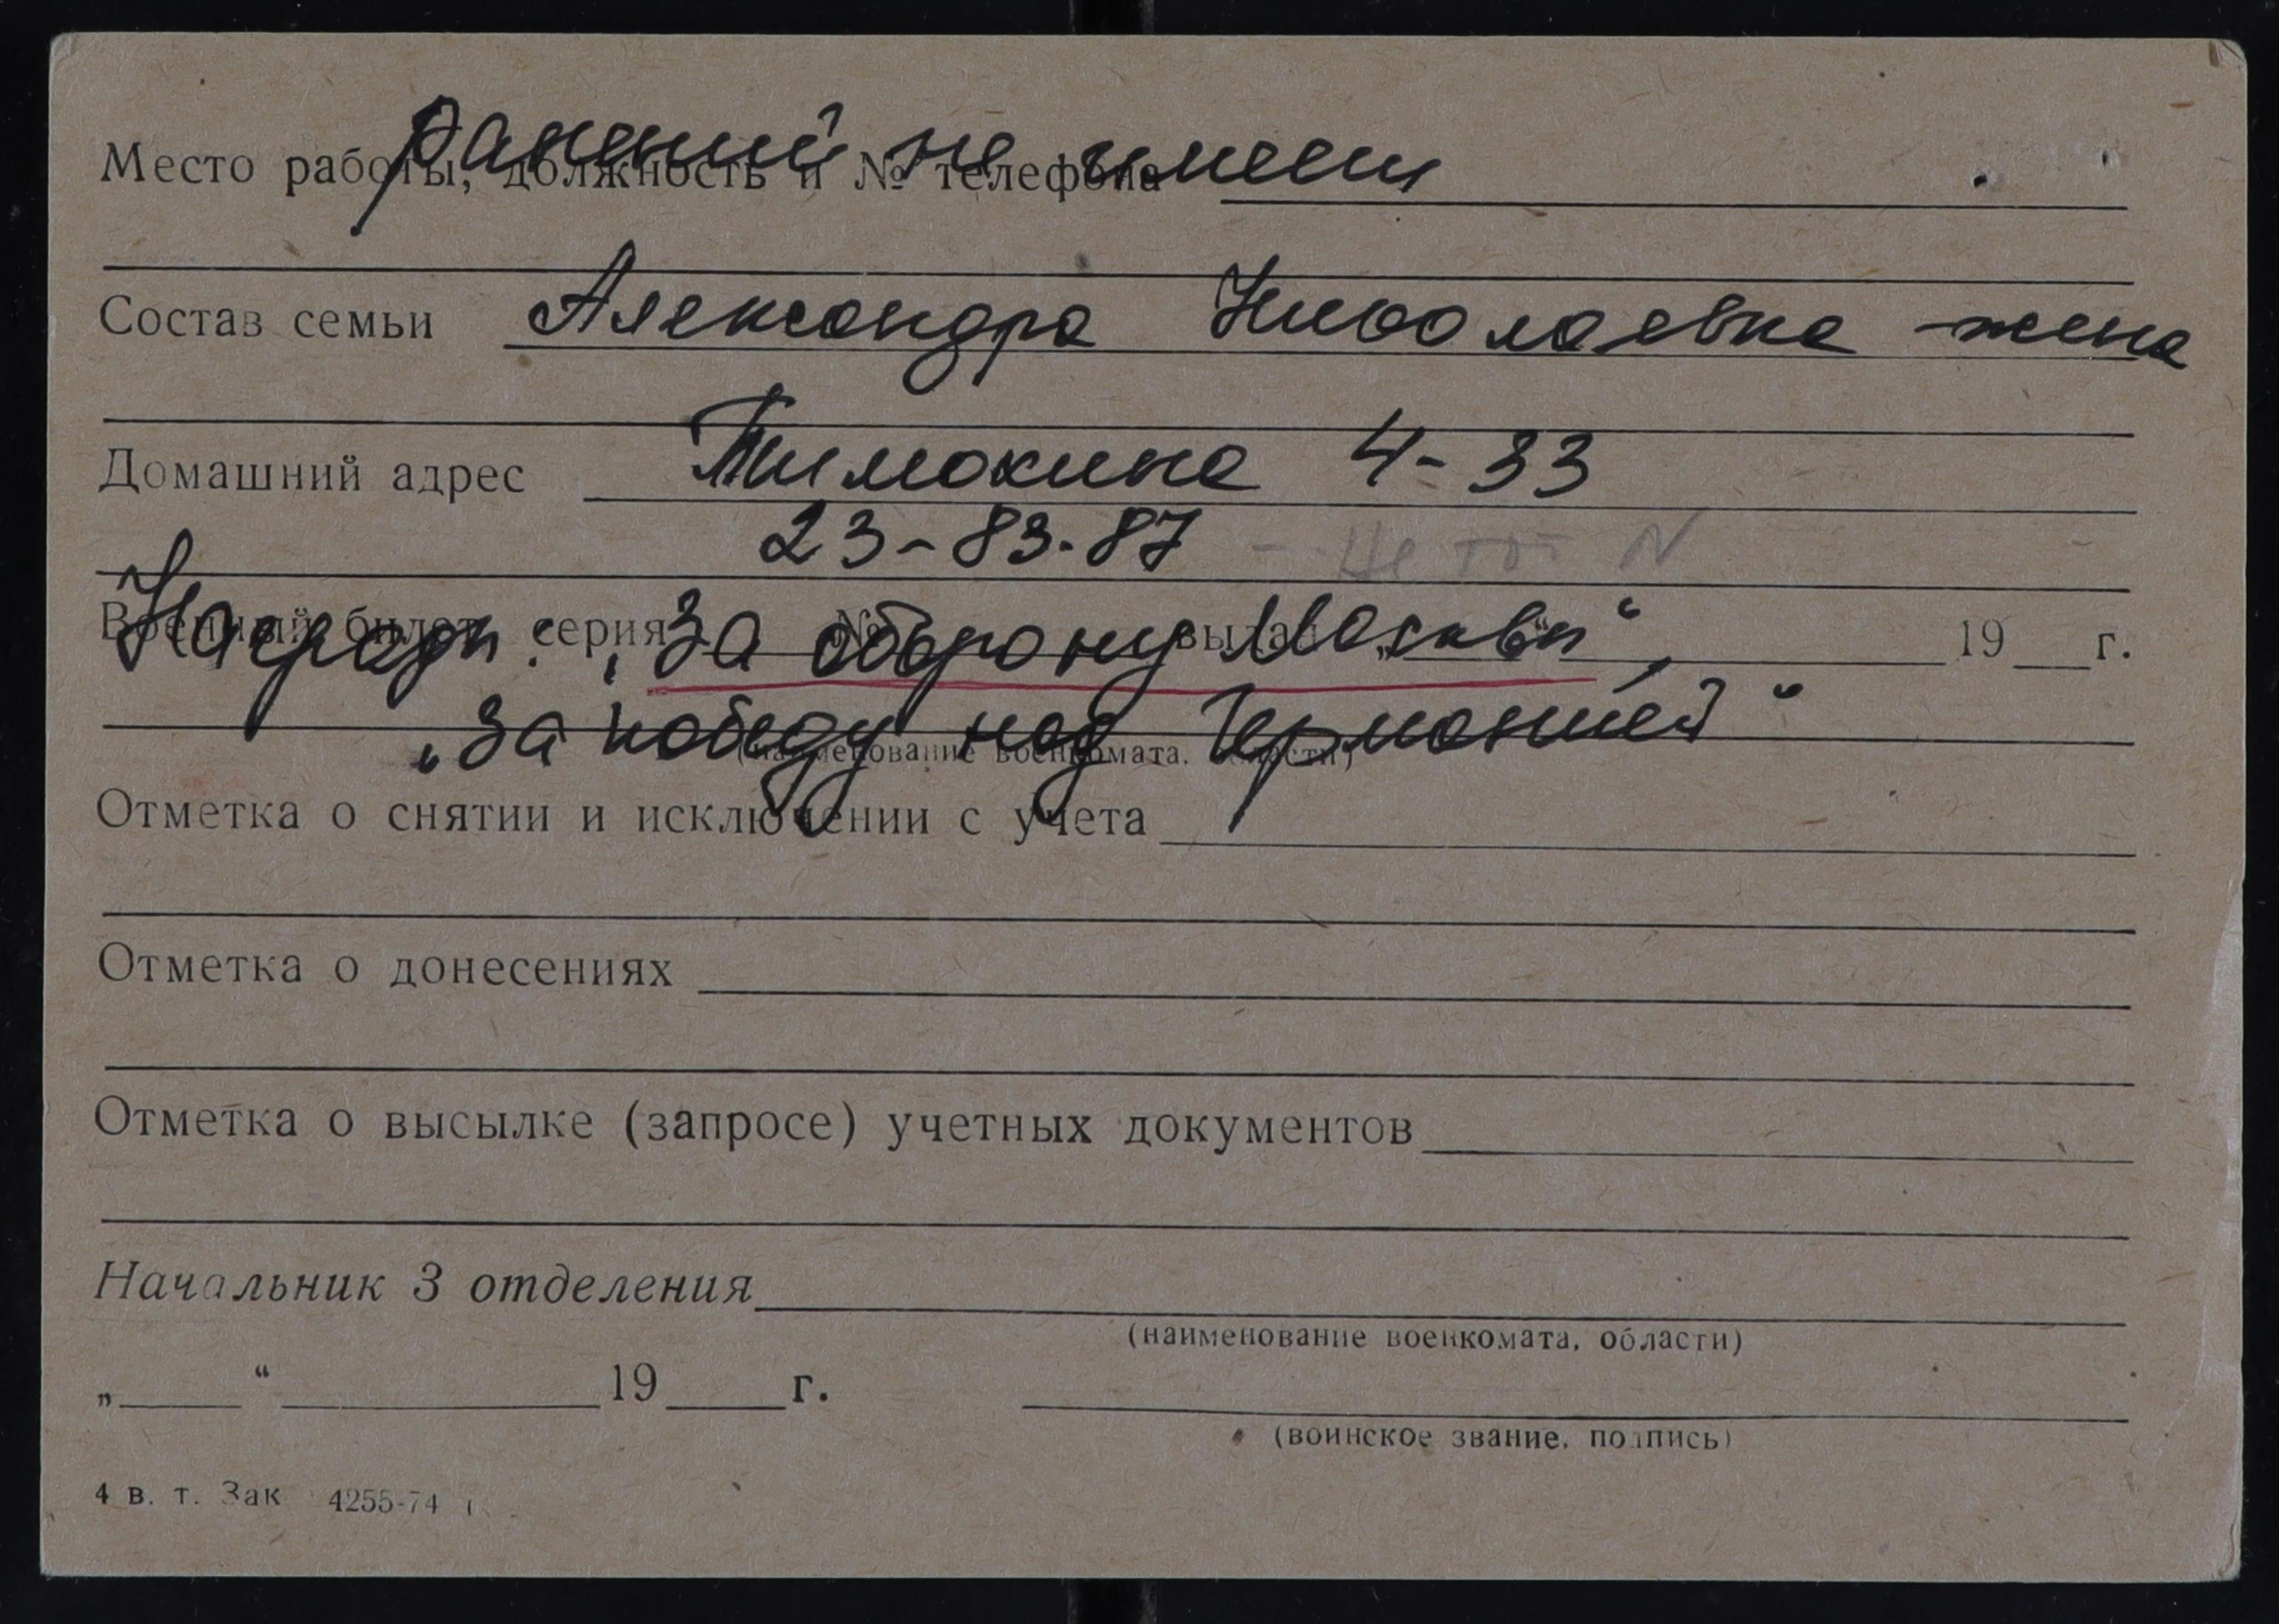 ранений не имеет
Место работы, должность и № телефона
Состав семьи Александра Николаевна - жена
Домашний адрес Тимохина 4-33
23-83-87 - не тот N
Военный билет серия № выдан „ “ 19 г.
Награды: „За оборону Москвы“,
„За победу над Германией“
(наименование военкомата, области)
Отметка о снятии и исключении с учета
Отметка о донесениях
Отметка о высылке (запросе) учетных документов
Начальник 3 отделения
(наименование военкомата, области)
„ “ 19 г.
(воинское звание, подпись)
4 в. т. Зак 4255-74 г